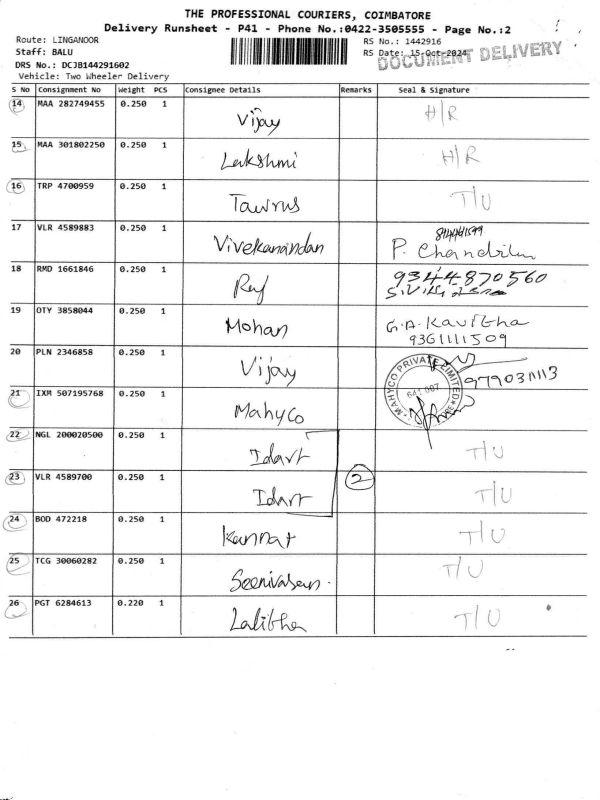 THE PROFESSIONAL COURIERS, COIMBATORE
Delivery Runsheet - P41 - Phone No.:0422-3505555 - Page No.:2
Route: LINGANOOR
RS No.: 1442916
Staff: BALU
RS Date: 15-Oct-2024
DOCUMENT DELIVERY
DRS No.: DCJB144291602
Vehicle: Two Wheeler Delivery
S No Consignment No Weight PCS Consignee Details Remarks Seal & Signature
14 MAA 282749455 0.250 1 Vijay H/R
15 MAA 301802250 0.250 1 Lakshmi H/R
16 TRP 4700959 0.250 1 Taurus T/U
17 VLR 4589883 0.250 1 Vivekanandan
P. Chandru
18 RMD 1661846 0.250 1 Raj 9344870560
19 OTY 3858044 0.250 1 Mohan G.A. Kavitha
9361111509
20 PLN 2346858 0.250 1 Vijay
21 IXM 507195768 0.250 1 Mahyco
MAHYCO PRIVATE LIMITED
641 007
22 NGL 200020500 0.250 1 Idart T/U
23 VLR 4589700 0.250 1 Idart 2 T/U
24 BOD 472218 0.250 1 Kannat T/U
25 TCG 30060282 0.250 1 Seenivasan. T/U
26 PGT 6284613 0.220 1 Lalitha T/U